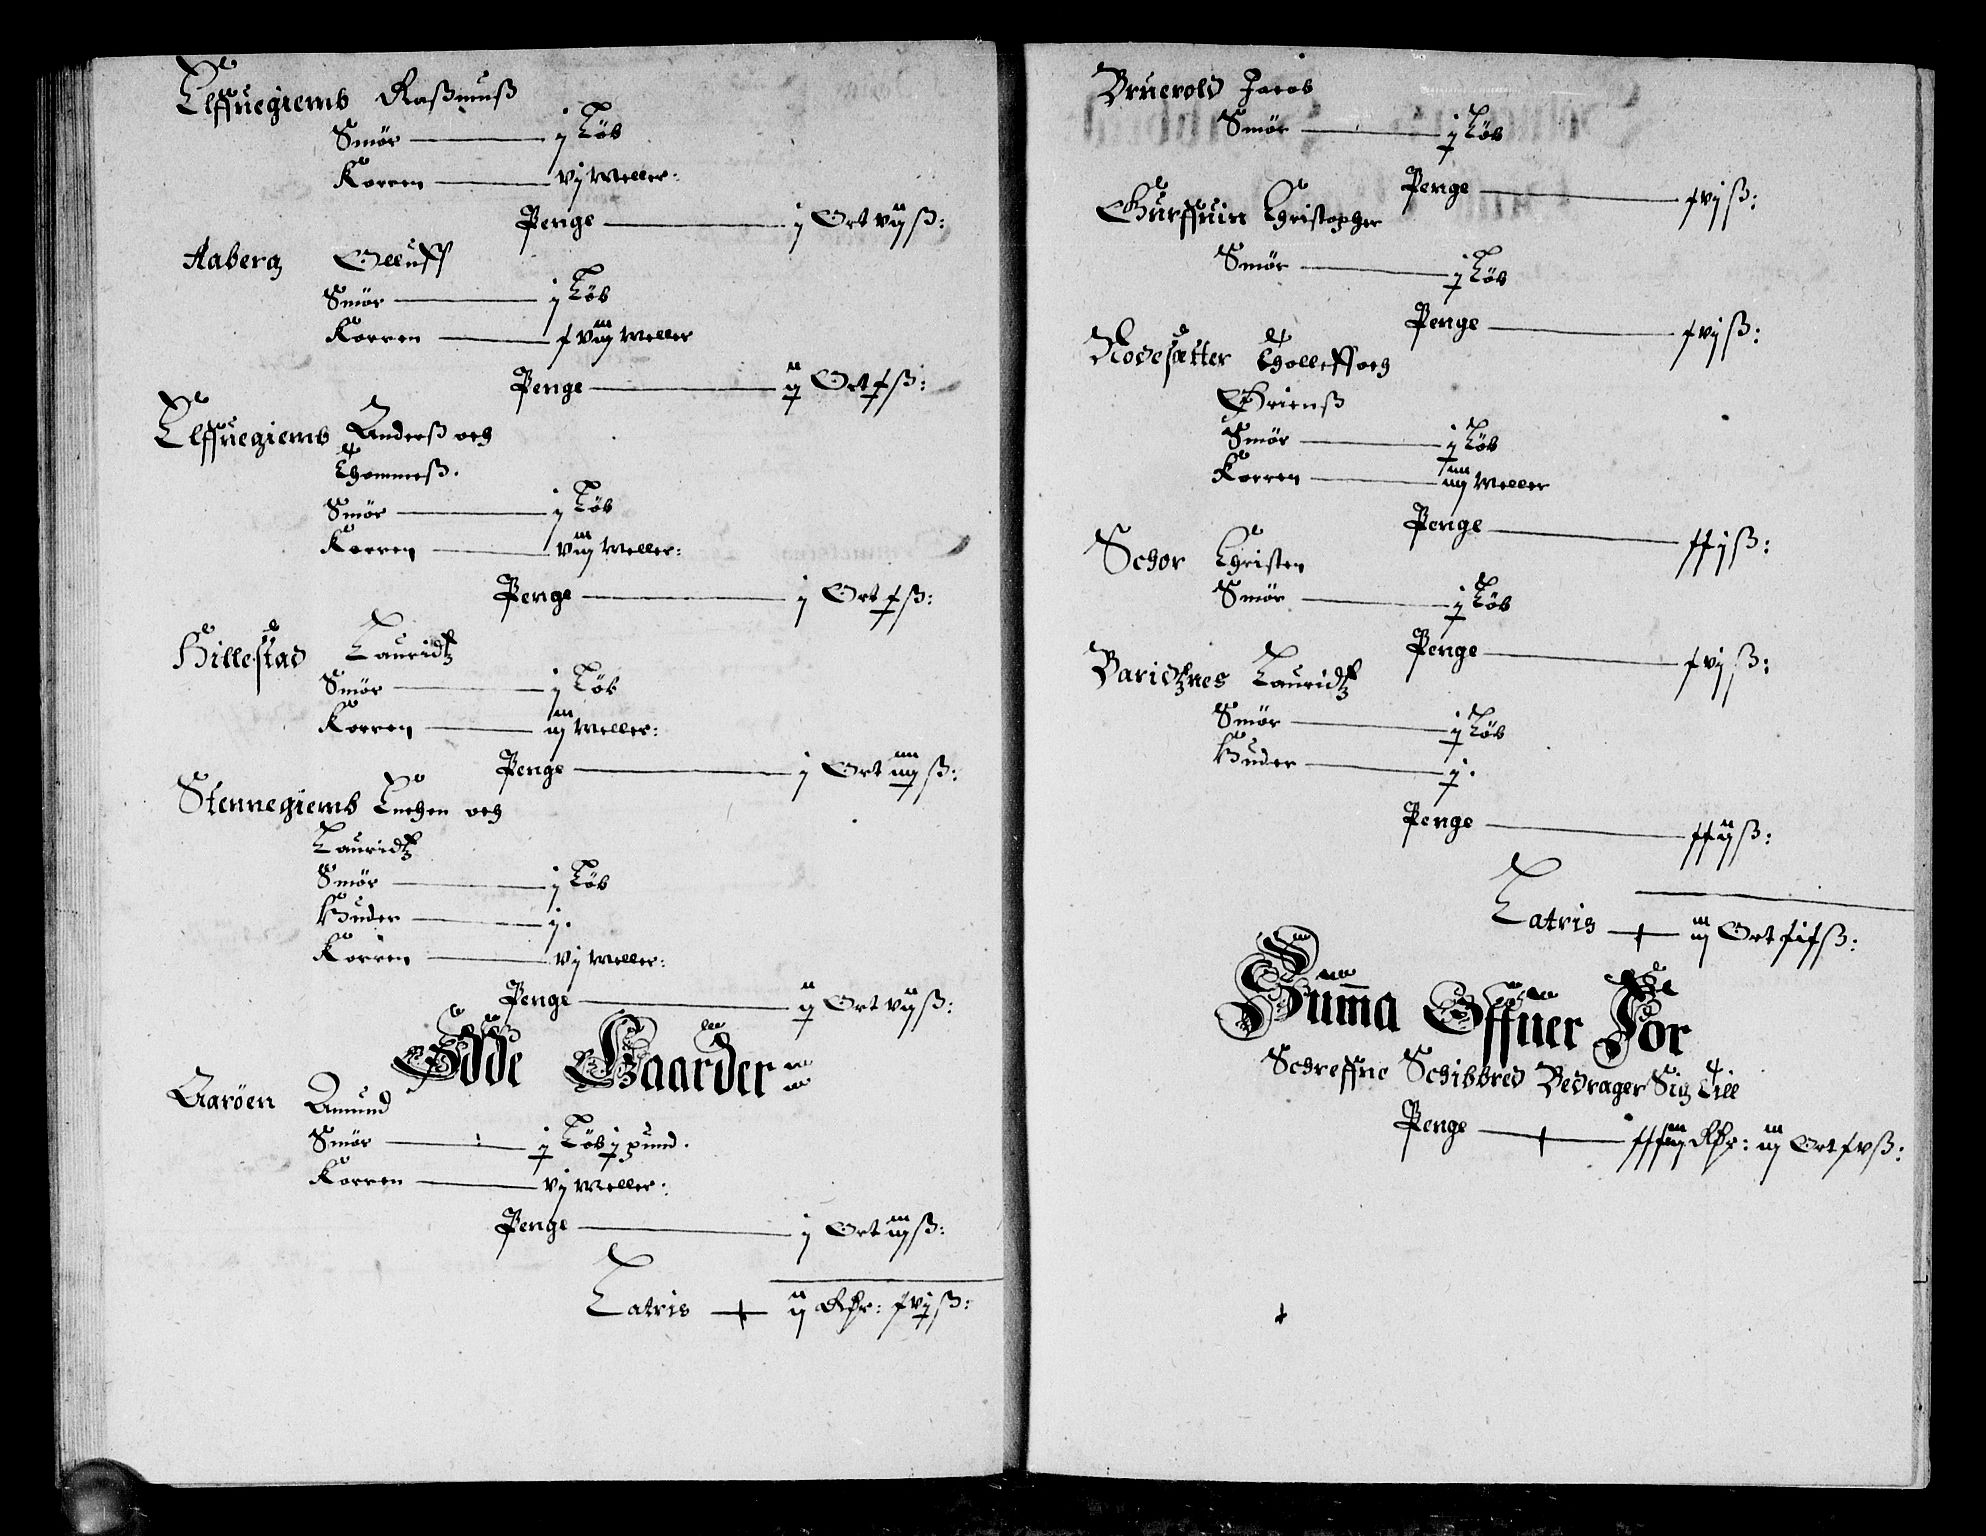 Elffuegiemb Raßmuß
Smör j Löb
Korren vj Meller:
Penge j Ort vij ß:
Aaberg Olluff
Smör j Löb
Korren viij Meller
Penge ij Ort x ß:
Elffuegiemb Anderß och
Thommeß.
Smör j Löb
Korren viij Meller:
Penge j Ort x ß:
Hillestad Lauridtz
Smör j Löb
Korren iij Meller:
Penge j Ort iiij ß:
Stennegiemb Knehen och
Lauridtz
Smör j Löb
Huder j.
Korren vj Meller:
Penge ij Ort vij ß:
Ödde Gaarder
Aaröen Amund
Smör j Löb j pund.
Korren vj Meller:
Penge j Ort iij ß:
Latris ij Rdr: xvj ß:
Bruerold Jacob
Smör j Löb
Penge xvj ß:
Gurffuin Christopher
Smör j Löb
Penge xvj ß:
Rodesætter Tholleff och
Grienß
Smör j Löb
Korren iiij Meller
Penge xxj ß:
Schor Christen
Smör j Löb
Penge xvj ß:
Baridtznes Lauridtz
Smör j Löb
Huder j.
Penge xxij ß:
Latris iij Ort xix ß:
Summa Offuer For
Schreffne Schibbred Bedrager Sig Till
Penge xxxiij Rdr: iij Ort xv ß: